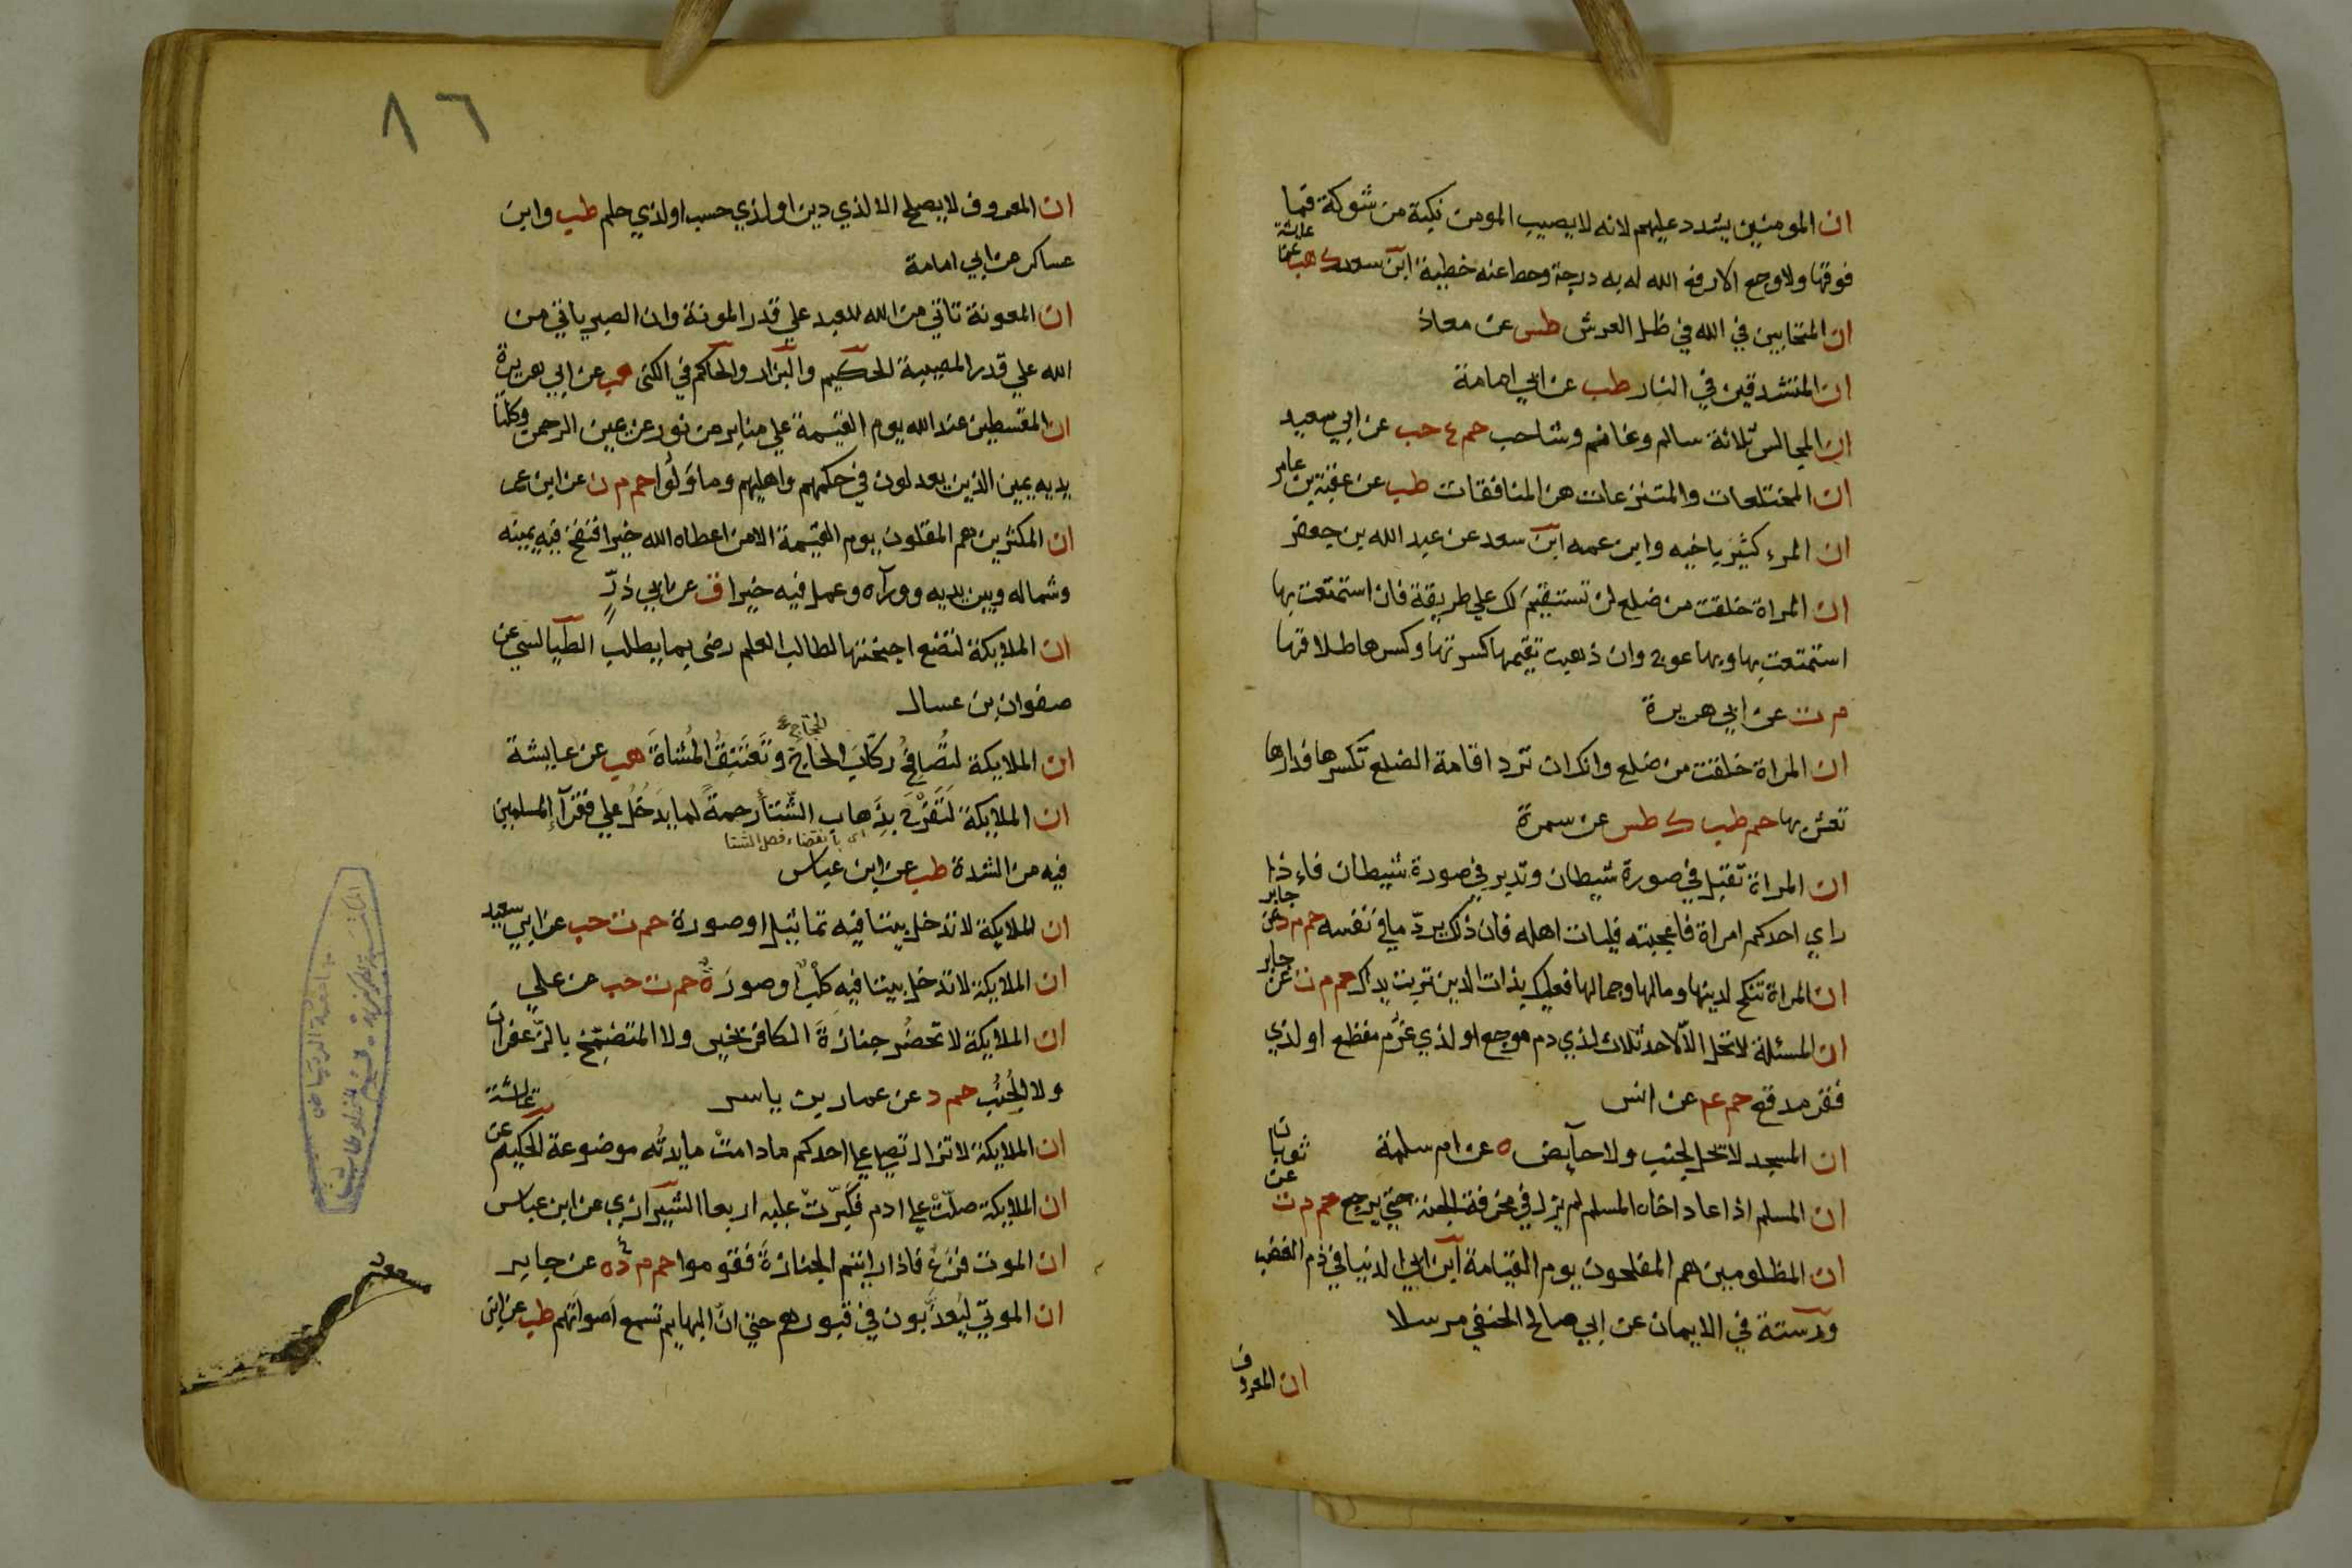 ان المومنين يشدد عليهم لانه لا يصيب المومن نكبة من شوكة فما
فوقها ولا وجع الا رفع الله له به درجة وحط عنه خطية ابن سعد ك هب عن عايشة
ان المتحابين في الله في ظل العرش طب عن معاذ
ان المتشدقين في النار طب عن ابي امامة
ان المجالس ثلاثة سالم وغانم وشاحب حم ع حب عن ابي سعيد
ان المختلعات والمتنزعات هن المنافقات طب عن عقبة بن عامر
ان المرء كثير باخيه وابن عمه ابن سعد عن عبد الله بن جعفر
ان المراة خلقت من ضلع لن تستقيم لك علي طريقة فان استمتعت بها
استمتعت بها وبها عوج وان ذهبت تقيمها كسرتها وكسرها طلاقها
م ت عن ابي هريرة
ان المراة خلقت من ضلع وانك ان ترد اقامة الضلع تكسرها فدارها
تعش بها حم طب ك طس عن سمرة
ان المراة تقبل في صورة شيطان وتدبر في صورة شيطان فاذا
راي احدكم امراة فاعجبته فليات اهله فان ذلك يرد ما في نفسه حم م د عن جابر
ان المراة تنكح لدينها ومالها وجمالها فعليك بذات الدين تربت يداك حم م ت عن جابر
ان المسئلة لا تحل الا لاحد ثلاث لذي دم موجع او لذي غرم مفظع او لذي
فقر مدقع حم عم عن انس
ان المسجد لا تحل لجنب ولا حايض ه عن ام سلمة
ان المسلم اذا عاد اخاه المسلم لم يزل في مخرفة الجنة حتي يرجع حم م ت عن ثوبان
ان المظلومين هم المفلحون يوم القيامة ابن ابي الدنيا في ذم الغضب
ورسته في الايمان عن ابي صالح الحنفي مرسلا
ان المعروف
٨٦
ان المعروف لا يصلح الا لذي دين او لذي حسب او لذي حلم طب وابن
عساكر عن ابي امامة
ان المعونة تاتي من الله للعبد علي قدر المونة وان الصبر ياتي من
الله علي قدر المصيبة الحكيم والبزار والحاكم في الكني هب عن ابي هريرة
ان المقسطين عند الله يوم القيمة علي منابر من نور عن يمين الرحمن وكلتا
يديه يمين الذين يعدلون في حكمهم واهليهم وما ولوا حم م ن عن ابن عمر
ان المكثرين هم المقلون يوم القيمة الا من اعطاه الله خيرا فنفخ فيه يمينه
وشماله وبين يديه ووراه وعمل فيه خيرا ق عن ابي ذر
ان الملايكة لتضع اجنحتها لطالب العلم رضي بما يطلب الطيالسي عن
صفوان بن عسال
ان الملايكة لتصافح ركاب الحاج وتعتنق المشاة هب عن عايشة
الحجاج
ان الملايكة لتفرح بذهاب الشتا رحمة لما يدخل علي فقرآ المسلمين
اي بانقضاء فصل الشتا
فيه من الشدة طب عن ابن عباس
ان الملايكة لا تدخل بيتا فيه تماثيل او صورة حم ت حب عن ابي سعيد
ان الملايكة لا تدخل بيتا فيه كلب او صورة حم ت حب عن علي
ان الملايكة لا تحضر جنازة الكافر بخير ولا المتضمخ بالزعفران
ولا الجنب حم د عن عمار بن ياسر
ان الملايكة لا تزال تصلي علي احدكم مادامت مايدته موضوعة الحكيم عن عائشة
ان الملايكة صلت علي ادم فكبرت عليه اربعا الشيرازي عن ابن عباس
ان الموت فزع فاذا رايتم الجنازة فقوموا حم م د ه عن جابر
ان الموتي ليعذبون في قبورهم حتي ان البهايم تسمع اصواتهم طب عن ابن